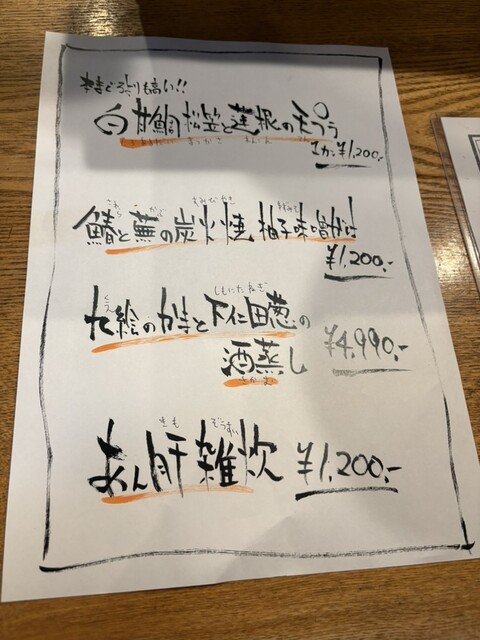 本まぐろよりも高い!!
白甘鯛松笠と蓮根の天プラ
1カン¥1,200.-
鰆と蕪の炭火焼 柚子味噌がけ
¥1,200.-
九絵のカマと下仁田葱の
酒蒸し ¥4,990.-
あん肝雑炊 ¥1,200.-